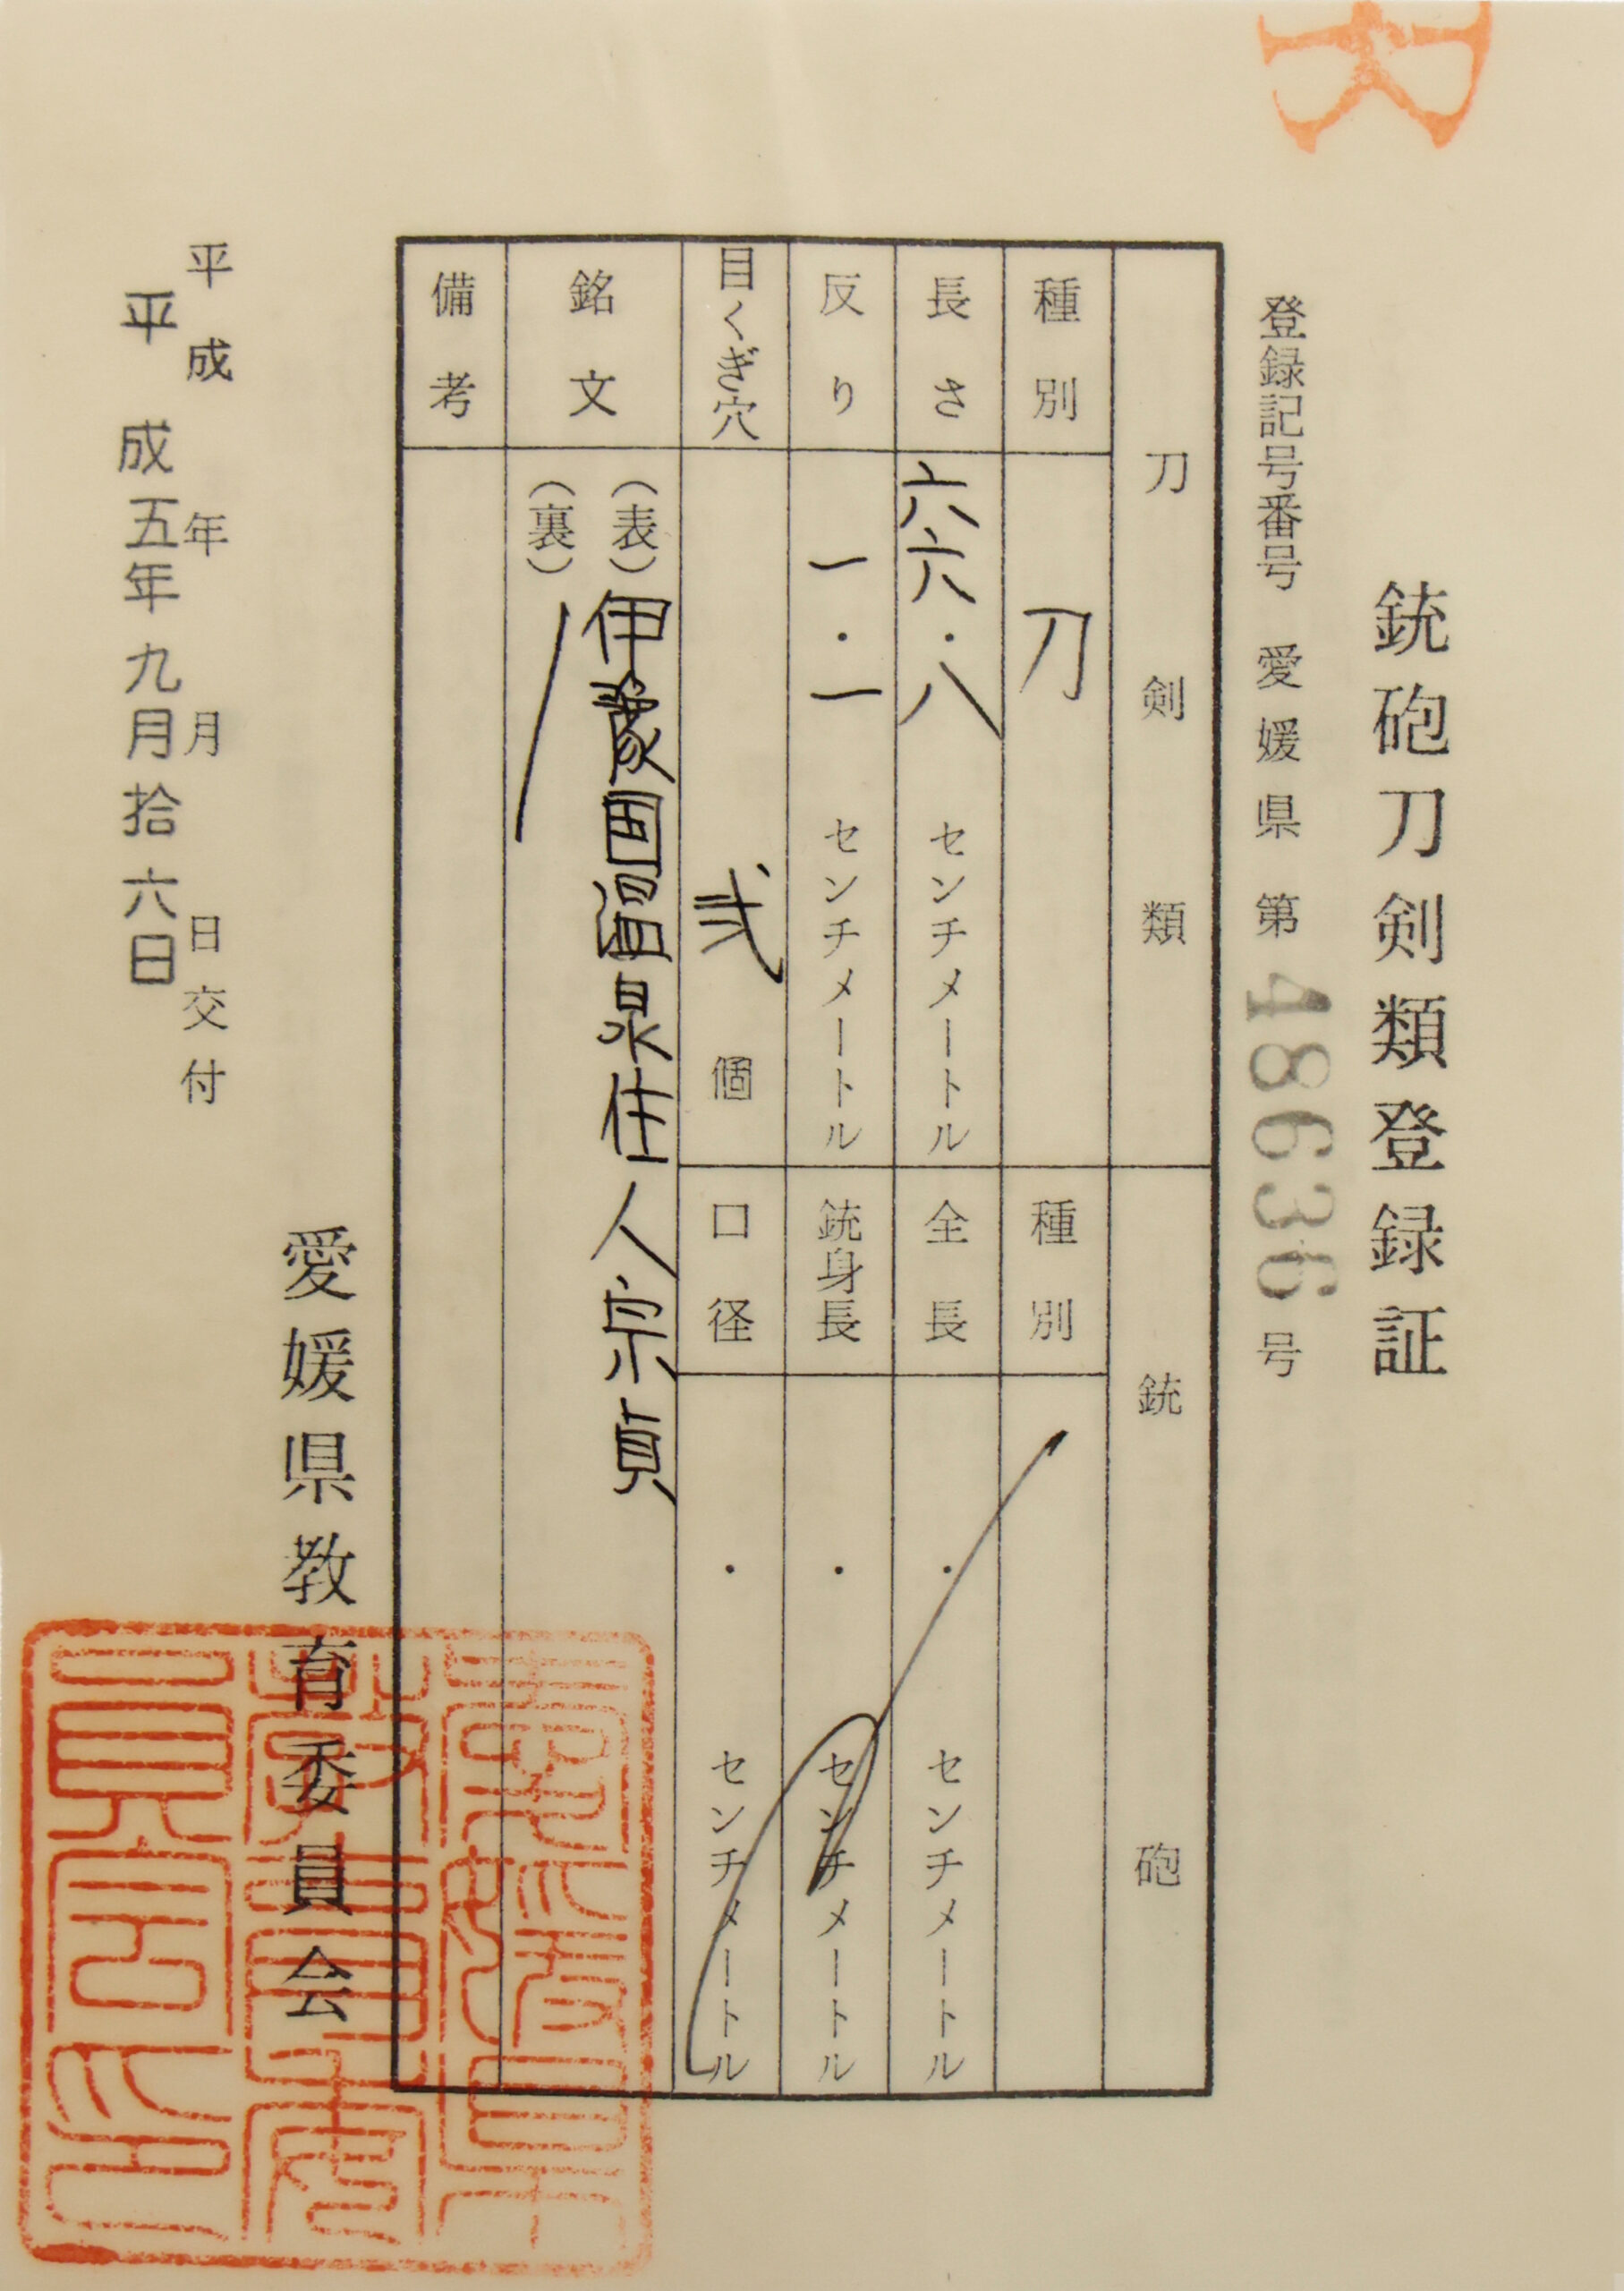 銃砲刀剣類登録証
登録記号番号 愛媛県 第 48636 号
刀剣類
銃砲
種別
刀
種別
長さ
六六・八
センチメートル
全長
・
センチメートル
反り
一・一
センチメートル
銃身長
・
センチメートル
目くぎ穴
弐
個
口径
・
センチメートル
銘文
(表)伊豫国温泉住人宗貞
(裏)
備考
愛媛県教育委員会
平成 年 月 日交付
平成五年九月拾六日